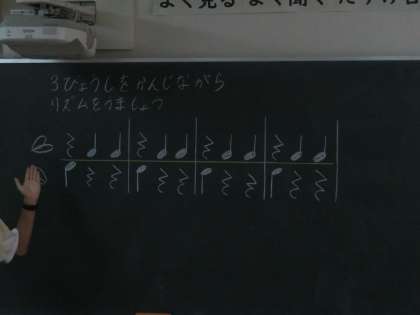 よく見る よく聞く
3びょうしをかんじながら
リズムをうちましょう